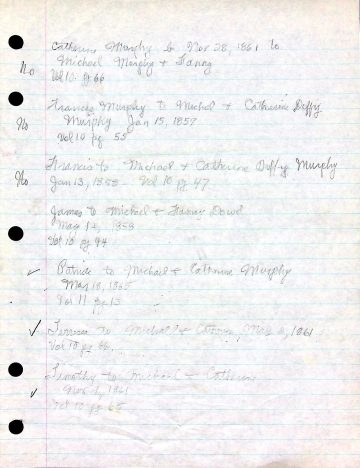 Catherine Murphy b. Nov 28, 1861 to
No Michael Murphy + Fanny
Vol 10. pg 66
Frances Murphy to Michel + Catherine Duffy
No Murphy Jan 15, 1857
Vol 10 pg 55
Francis to Michael + Catherine Duffy Murphy
No Jan 13, 1858 - Vol 10 pg 47
James to Michael + Fanny Dowd
May 14, 1858
Vol 10 pg 44
✓ Patrick to Michael + Catherine Murphy
Mar 18, 1865
Vol 11 pg 13
✓ to Michael + 1861
Vol 10 pg 66
Timothy to Michael + Catherine
✓ Nov 1861
Vol 10 pg